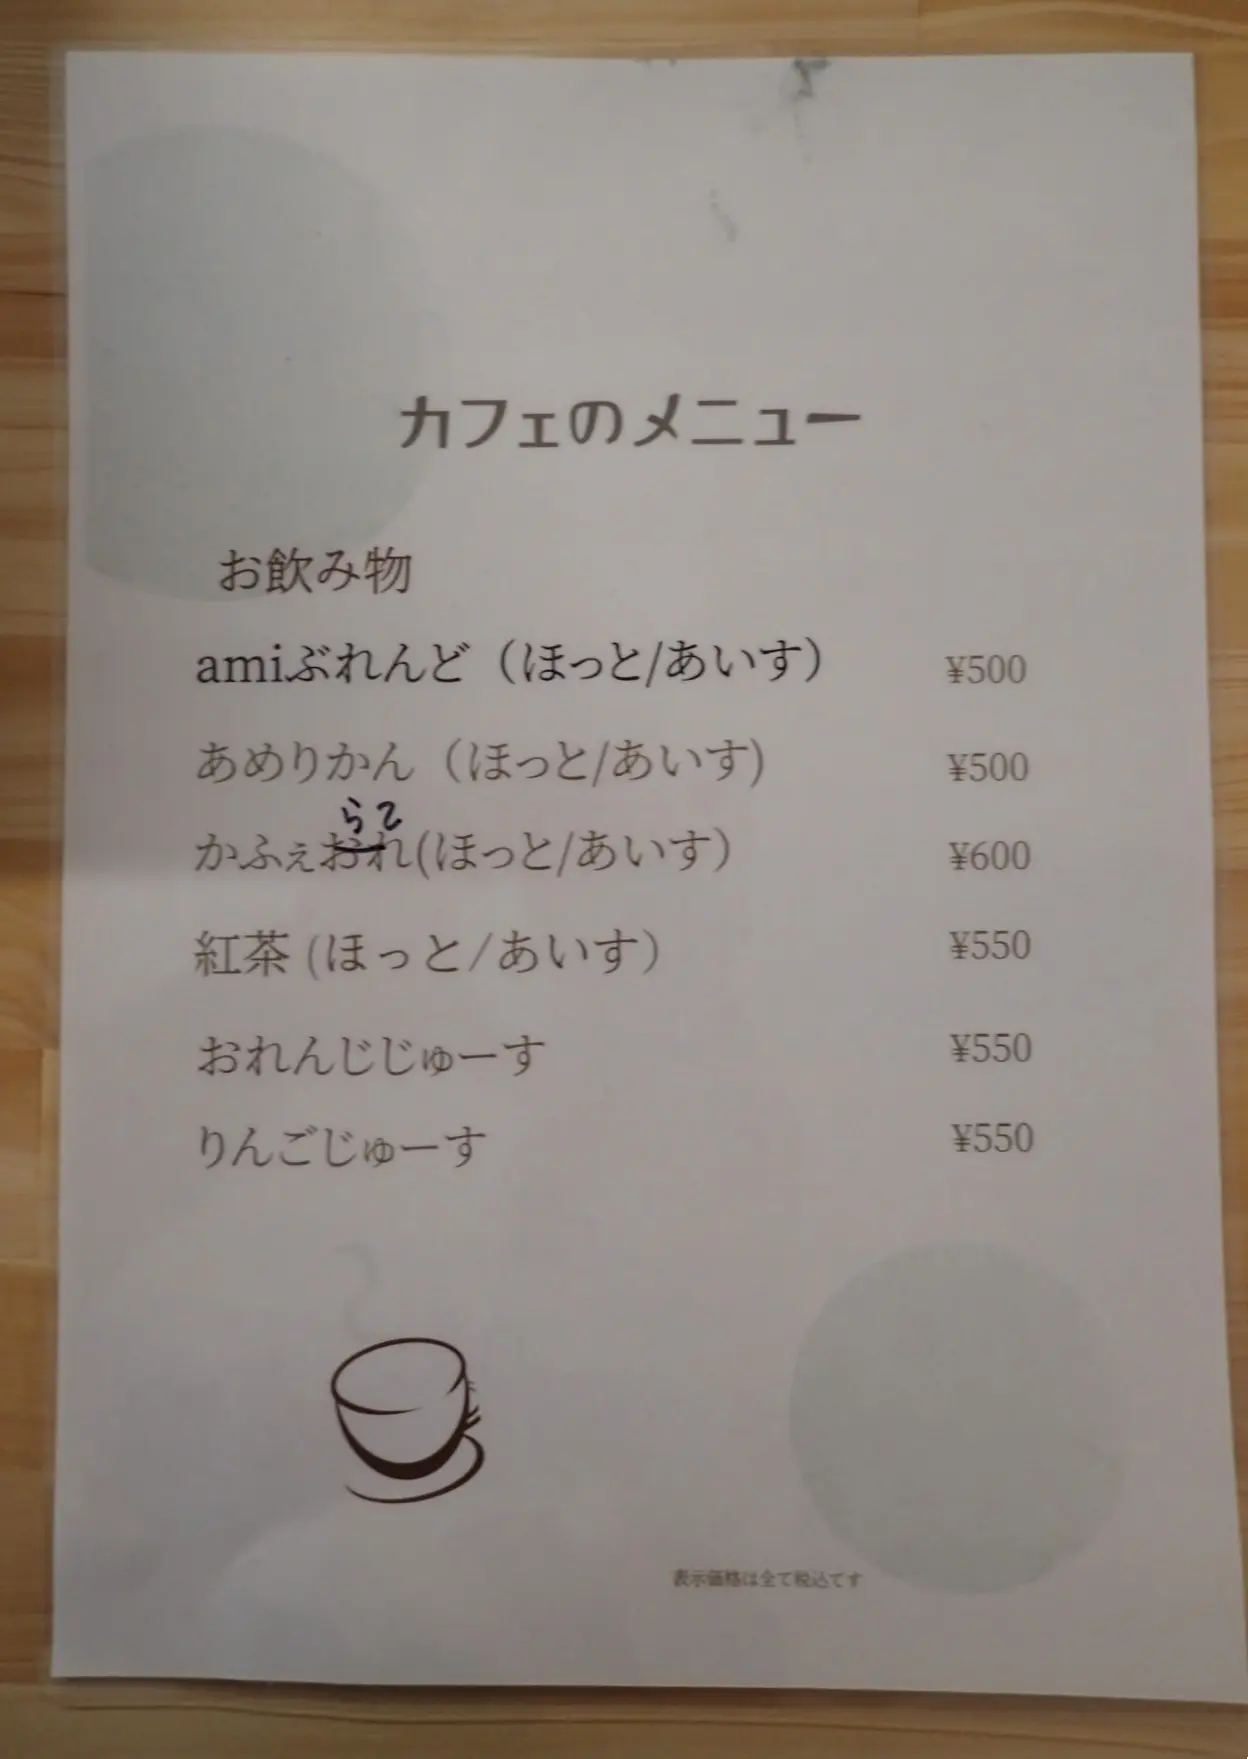 カフェのメニュー
お飲み物
amiぶれんど（ほっと/あいす） ¥500
あめりかん（ほっと/あいす) ¥500
らて
かふぇおれ(ほっと/あいす） ¥600
紅茶 (ほっと/あいす） ¥550
おれんじじゅーす ¥550
りんごじゅーす ¥550
表示価格は全て税込です